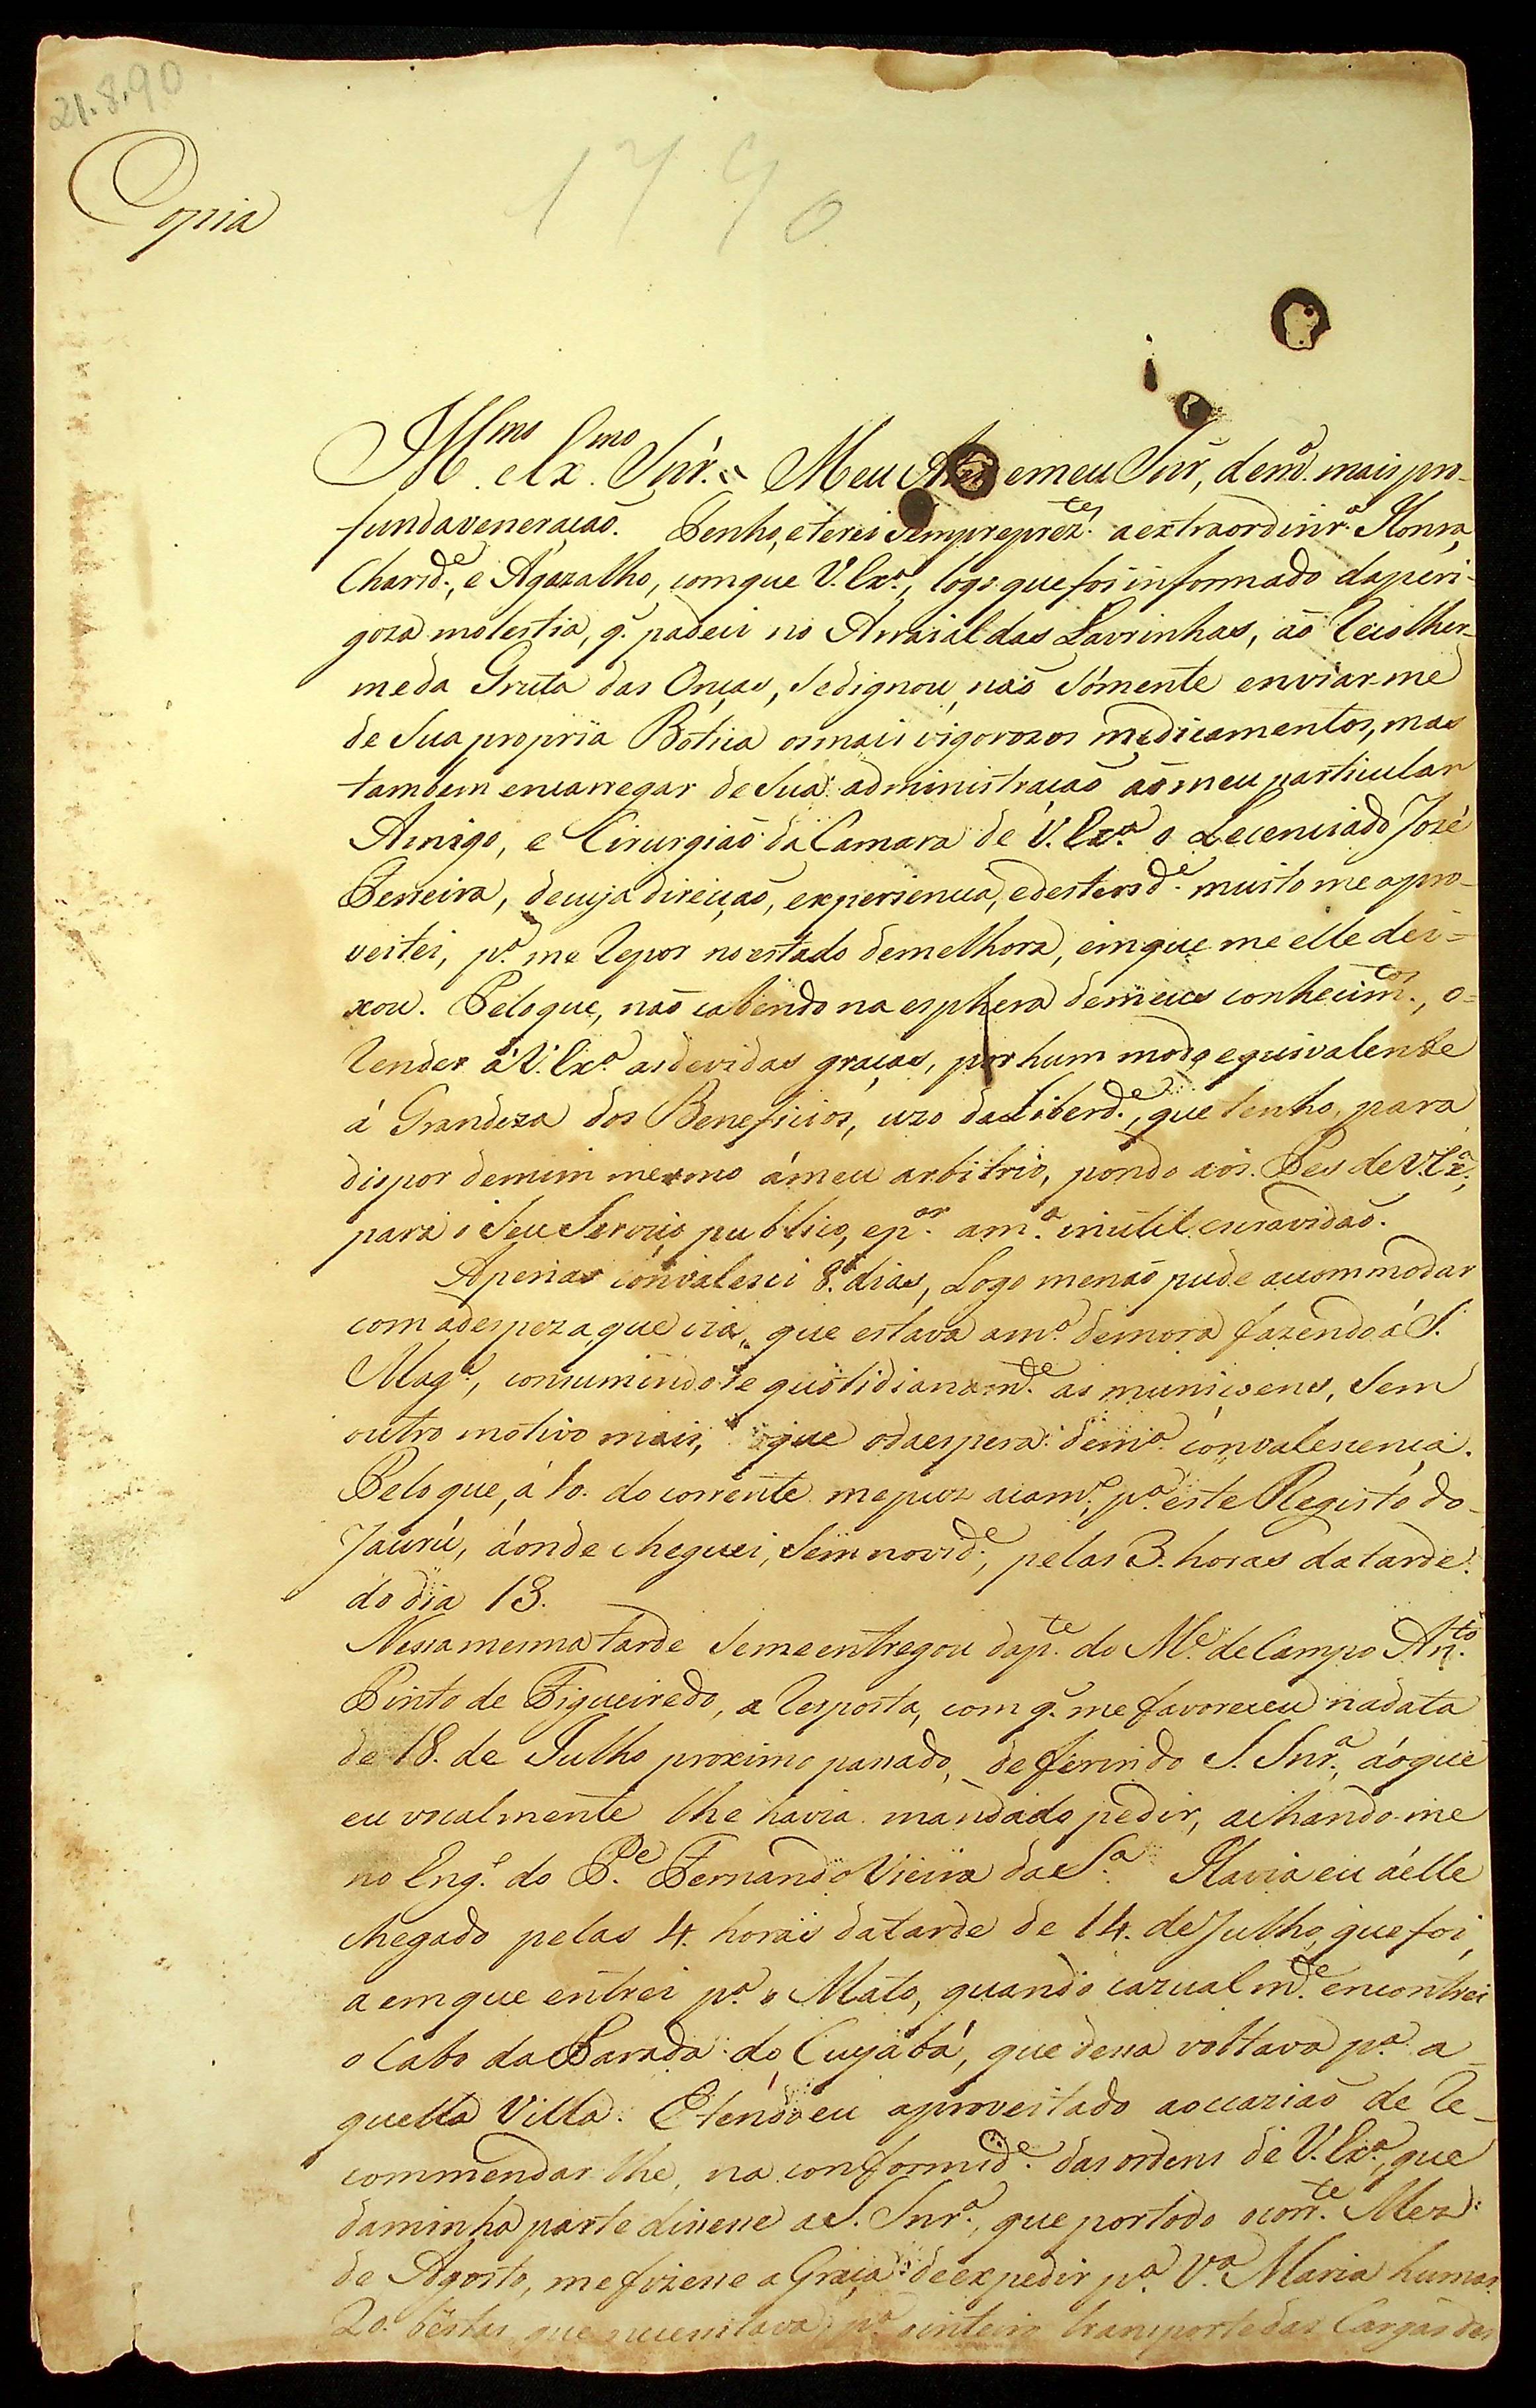 21.8.90
1790
Copia
Illmo. e Exmo. Snr. Meu Amo e meu Snr, de m.ª mais pro-
funda veneraçaõ. Tenho, e terei sempre prez.tes a extraordinr.ª Honra,
Charid.e, e Agazalho, com que V. Ex.ª, logo que foi informado da peri-
goza molestia, q̃. padeci no Arraial das Lavrinhas, aõ recolher-
me da Gruta das Onças, se dignou naõ sómente enviar-me
de Sua propria Botica os mais vigorozos medicamentos, mas
tambem encarregar de Sua administraçaõ aõ meu particular
Amigo, e Cirurgiaõ da Camara de V. Ex.ª o Lecenciado Jozé
Ferreira, de cuja direiçaõ, experiencia, e destersd.e muito me apro-
veitei, p.ª me repor no estado de melhora, em que me elle dei-
xou. Pelo que, naõ cabendo na esphera de meus conhecim.tos, o-
render á V. Ex.ª as devidas graças, por hum modo equivalente
á Grandeza dos Beneficios, uzo da Liberd.e, que tenho, para
dispor de mim mesmo á meu arbitrio, pondo aós Pes de V. Ex.ª,
para o Seu Serviço publico, e p.ar a m.ª inutil escravidaõ.
Apenas convalesci 8. dias, Logo me naõ pude accommodar
com a despeza, que via, que estava a m.ª demora fazendo á S.
Mag.e, consumindo-se quotidianam.te as municoens, sem
outro motivo mais, que o da espera de m.ª convalescença.
Pelo que, á 10. do corrente me puz a cam.º, p.ª este Registo do
Jaurú, áonde cheguei, sem novid.e, pelas 3. horas da tarde
do dia 13.
Nessa mesma tarde se me entregou da p.te do M.e de Campo An.to
Pinto de Figueiredo, a resposta, com q̃. me favoreceu na data
de 18. de Julho proximo passado, deferindo S. Snr.ª, áo que
eu vocalmente lhe havia mandado pedir, achando-me
no Eng.º do P.e Fernando Vieira da S.ª Havia eu á elle
chegado pelas 4. horas da tarde de 14. de Julho, que foi,
a em que entrei p.ª o Mato, quando cazualm.te encontrei
o Cabo da Parada do Cuyabá, que dessa voltava p.ª a-
quella Villa. E tendo eu aproveitado a occaziaõ de re-
commendar-lhe, na conformid.e das ordens de V. Ex.ª, que
da minha parte dissesse a S. Snr.ª, que por todo o corr.te Mez
de Agosto, me fizesse a Graça de expedir p.ª V.ª Maria humas
20. bestas, que necessitava, p.ª o inteiro transporte das Cargas des